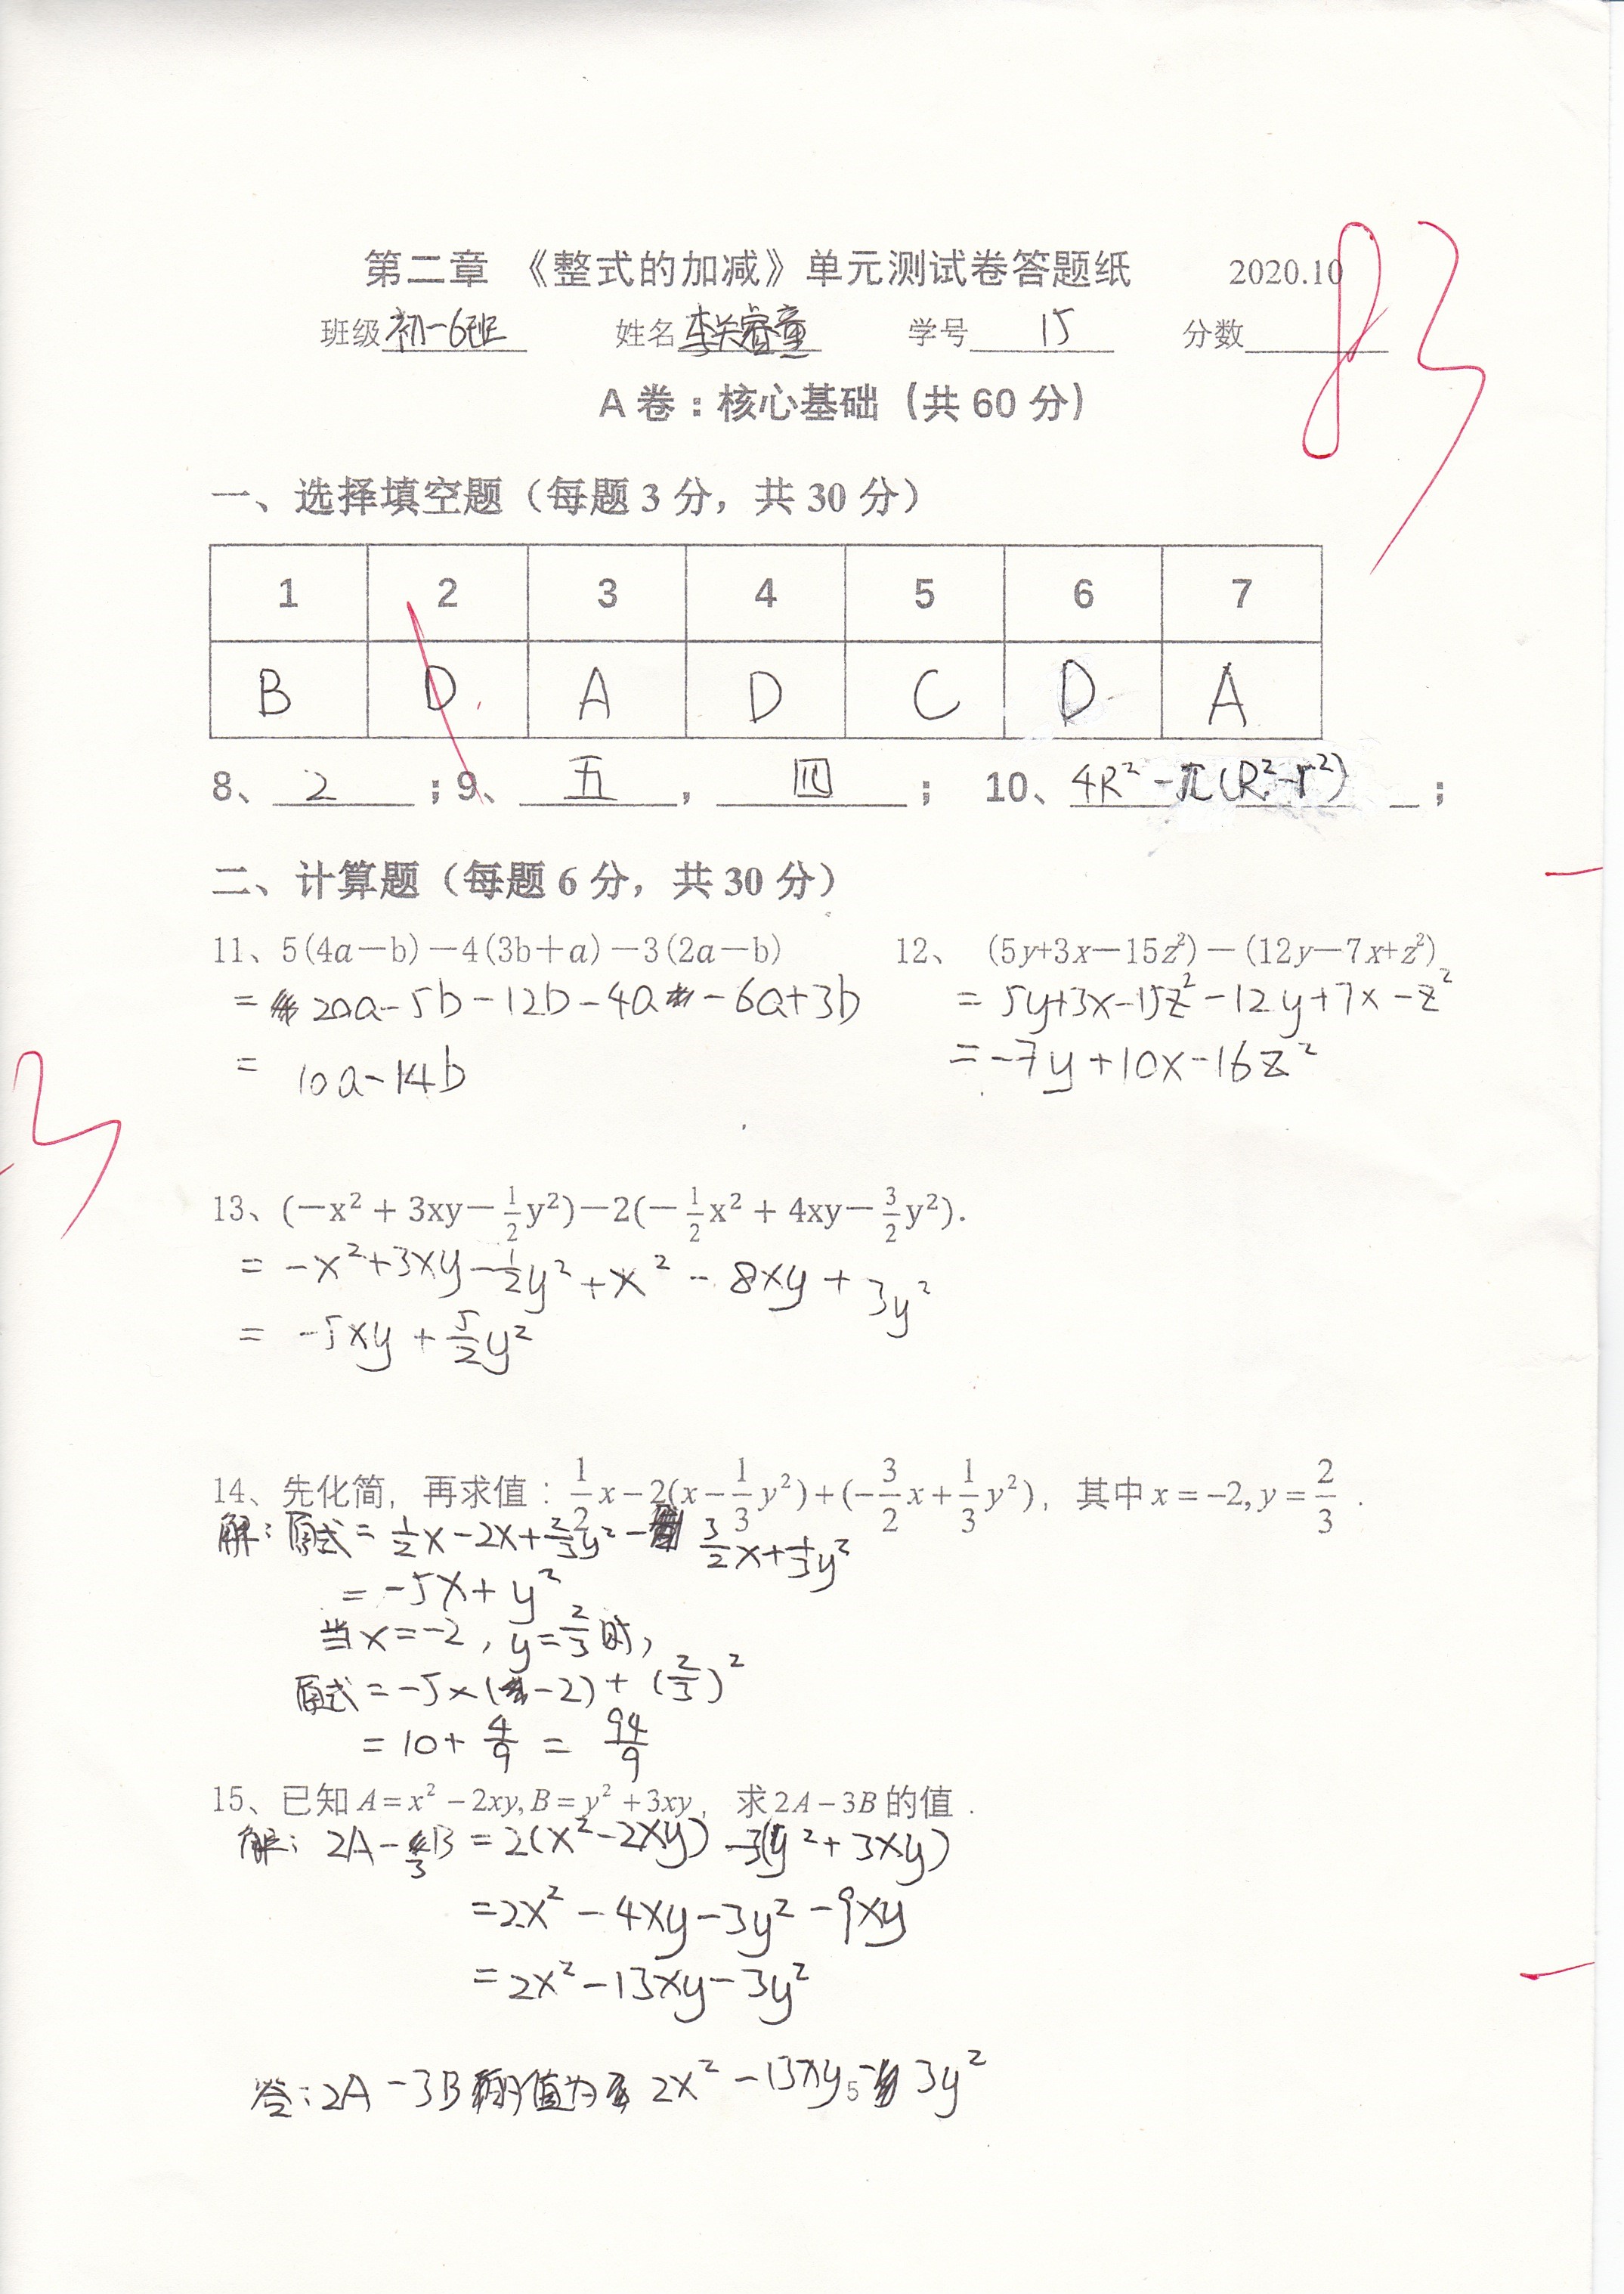 第二章 《整式的加减》单元测试卷答题纸 2020.10
班级 初一6班 姓名 李关睿童 学号 15 分数 83
A 卷:核心基础(共 60 分)
一、选择填空题(每题 3 分,共 30 分)
1 2 3 4 5 6 7
B D A D C D A
8、 2 ;9、 五 , 四 ; 10、 4R²-π(R²-r²) ;
二、计算题(每题 6 分,共 30 分)
11、5(4a-b)-4(3b+a)-3(2a-b) 12、 (5y+3x-15z²)-(12y-7x+z²)
= 20a-5b-12b-4a-6a+3b = 5y+3x-15z²-12y+7x-z²
= 10a-14b =-7y+10x-16z²
13、(-x² + 3xy-1/2y²)-2(-1/2x² + 4xy-3/2y²).
= -x²+3xy-1/2y²+x²-8xy+3y²
= -5xy+5/2y²
14、先化简,再求值:1/2x-2(x-1/3y²)+(-3/2x+1/3y²),其中x=-2,y=2/3.
解:原式=1/2x-2x+2/3y²-3/2x+1/3y²
=-5x+y²
当x=-2,y=2/3时,
原式=-5×(-2)+(2/3)²
=10+4/9=94/9
15、已知A=x²-2xy,B=y²+3xy,求2A-3B的值.
解:2A-3B=2(x²-2xy)-3(y²+3xy)
=2x²-4xy-3y²-9xy
=2x²-13xy-3y²
答:2A-3B的值为2x²-13xy-3y²
5